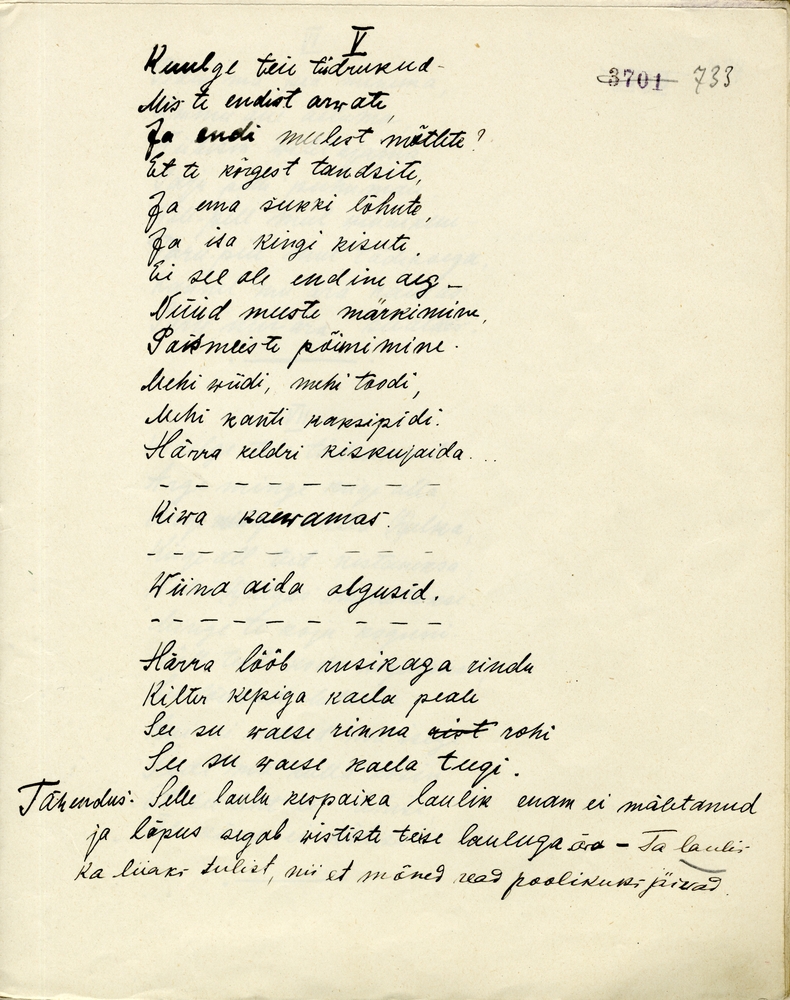 V
3701 733
Kuulge teie tüdrukud -
Mis te endist arwate,
Ja endi meelest mõtlete?
Et te kõrgest tandsite,
Ja ema sukki lõhute,
Ja isa kingi kisute,
Ei see ole endine aeg -
Nüüd meeste märkimine,
Poismeeste põimimine.
Mehi wiidi, mehi toodi,
Mehi kanti kaksipidi.
Härra keldri kiskujaida...
- - - - - - - - -
Kiwa kaewamas.
- - - - - - - - -
Wiina aida algusid.
- - - - - - - - -
Härra lööb rusikaga rindu
Kilter kepiga kaela peale
See su waese rinna rist rohi
See su waese kaela teegi.
Tähendus: Selle laulu keskpaika laulik enam ei mäletanud
ja lõpus segab wististi teise lauluga ära - Ta laulis
ka liiaks sulist, nii et mõned read poolikuks jäivad.